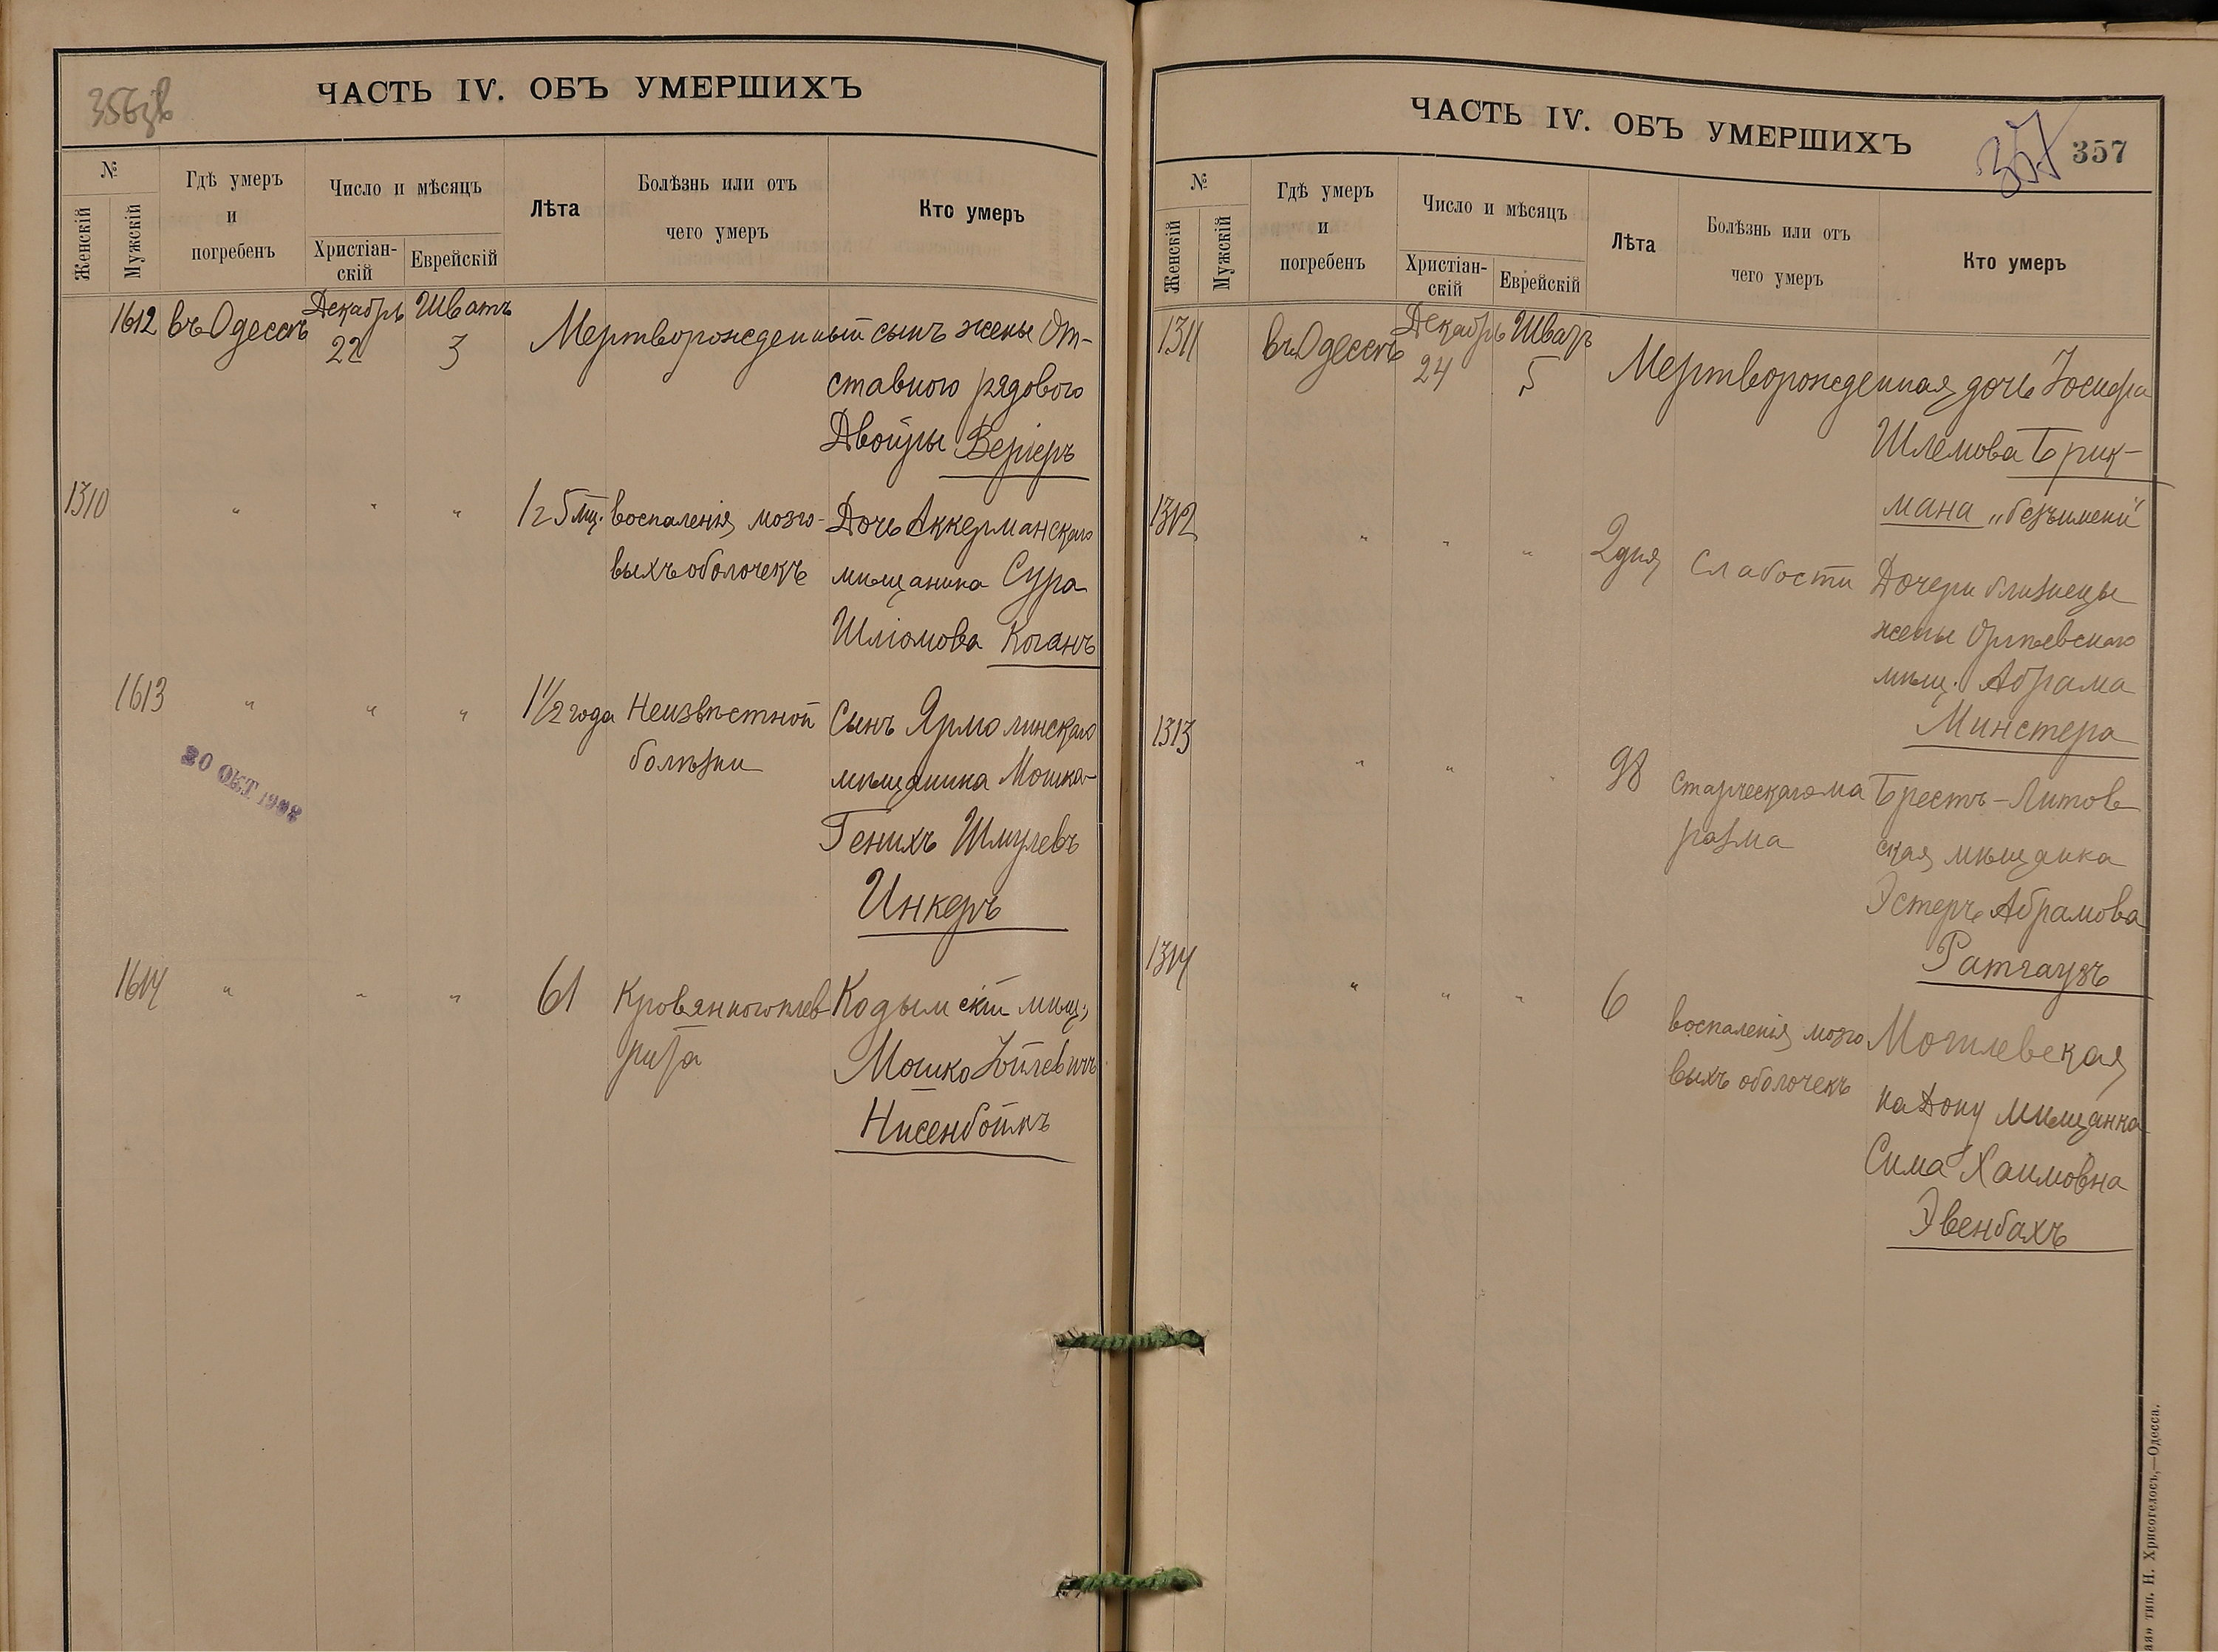 ЧАСТЬ IV. ОБЪ УМЕРШИХЪ
№
Женскій
Мужскій
Гдѣ умеръ
и
погребенъ
Число и мѣсяцъ
Христіан-
скій
Еврейскій
Лѣта
Болѣзнь или отъ
чего умеръ
Кто умеръ
1612 въ Одессѣ Декабрь 22 Шватъ 3 Мертворожденный сынъ жены От-
ставного рядового
Двойры
1310 " " " 1 г 5 мц. воспаленія мозго- Дочь Аккерманскаго
выхъ оболочекъ мѣщанина Сура
Шліомова Коганъ
1613 " " " 1 1/2 года Неизвѣстной Сынъ Ярмолинскаго
болѣзни мѣщанина Мошка-
Генихъ Шмулевъ
Инкеръ
20 ОКТ
1614 " " " 61 Кровянного плев- Кодымскій мѣщ.
рита Мошко
Нисенбоймъ
ЧАСТЬ IV. ОБЪ УМЕРШИХЪ
357 357
№
Женскій
Мужскій
Гдѣ умеръ
и
погребенъ
Число и мѣсяцъ
Христіан-
скій
Еврейскій
Лѣта
Болѣзнь или отъ
чего умеръ
Кто умеръ
1311 въ Одессѣ Декабрь 24 Шватъ 5 Мертворожденная дочь Іосифа
Шлемова Брик-
мана „безъимени"
1312 " " " 2 дня Слабости Дочери близнецы
жены Оргѣевскаго
мѣщ. Абрама
Минстера
1313 " " " 98 Старческаго ма Брестъ-Литов
разма ская мѣщанка
Эстеръ Абрамова
Ратгаузъ
1314 " " " 6 воспаленія мозго Могилевская
выхъ оболочекъ на Дону мѣщанка
Сима Хаимовна
Эвенбахъ
тип. Н. Хрисогелосъ,—Одесса.